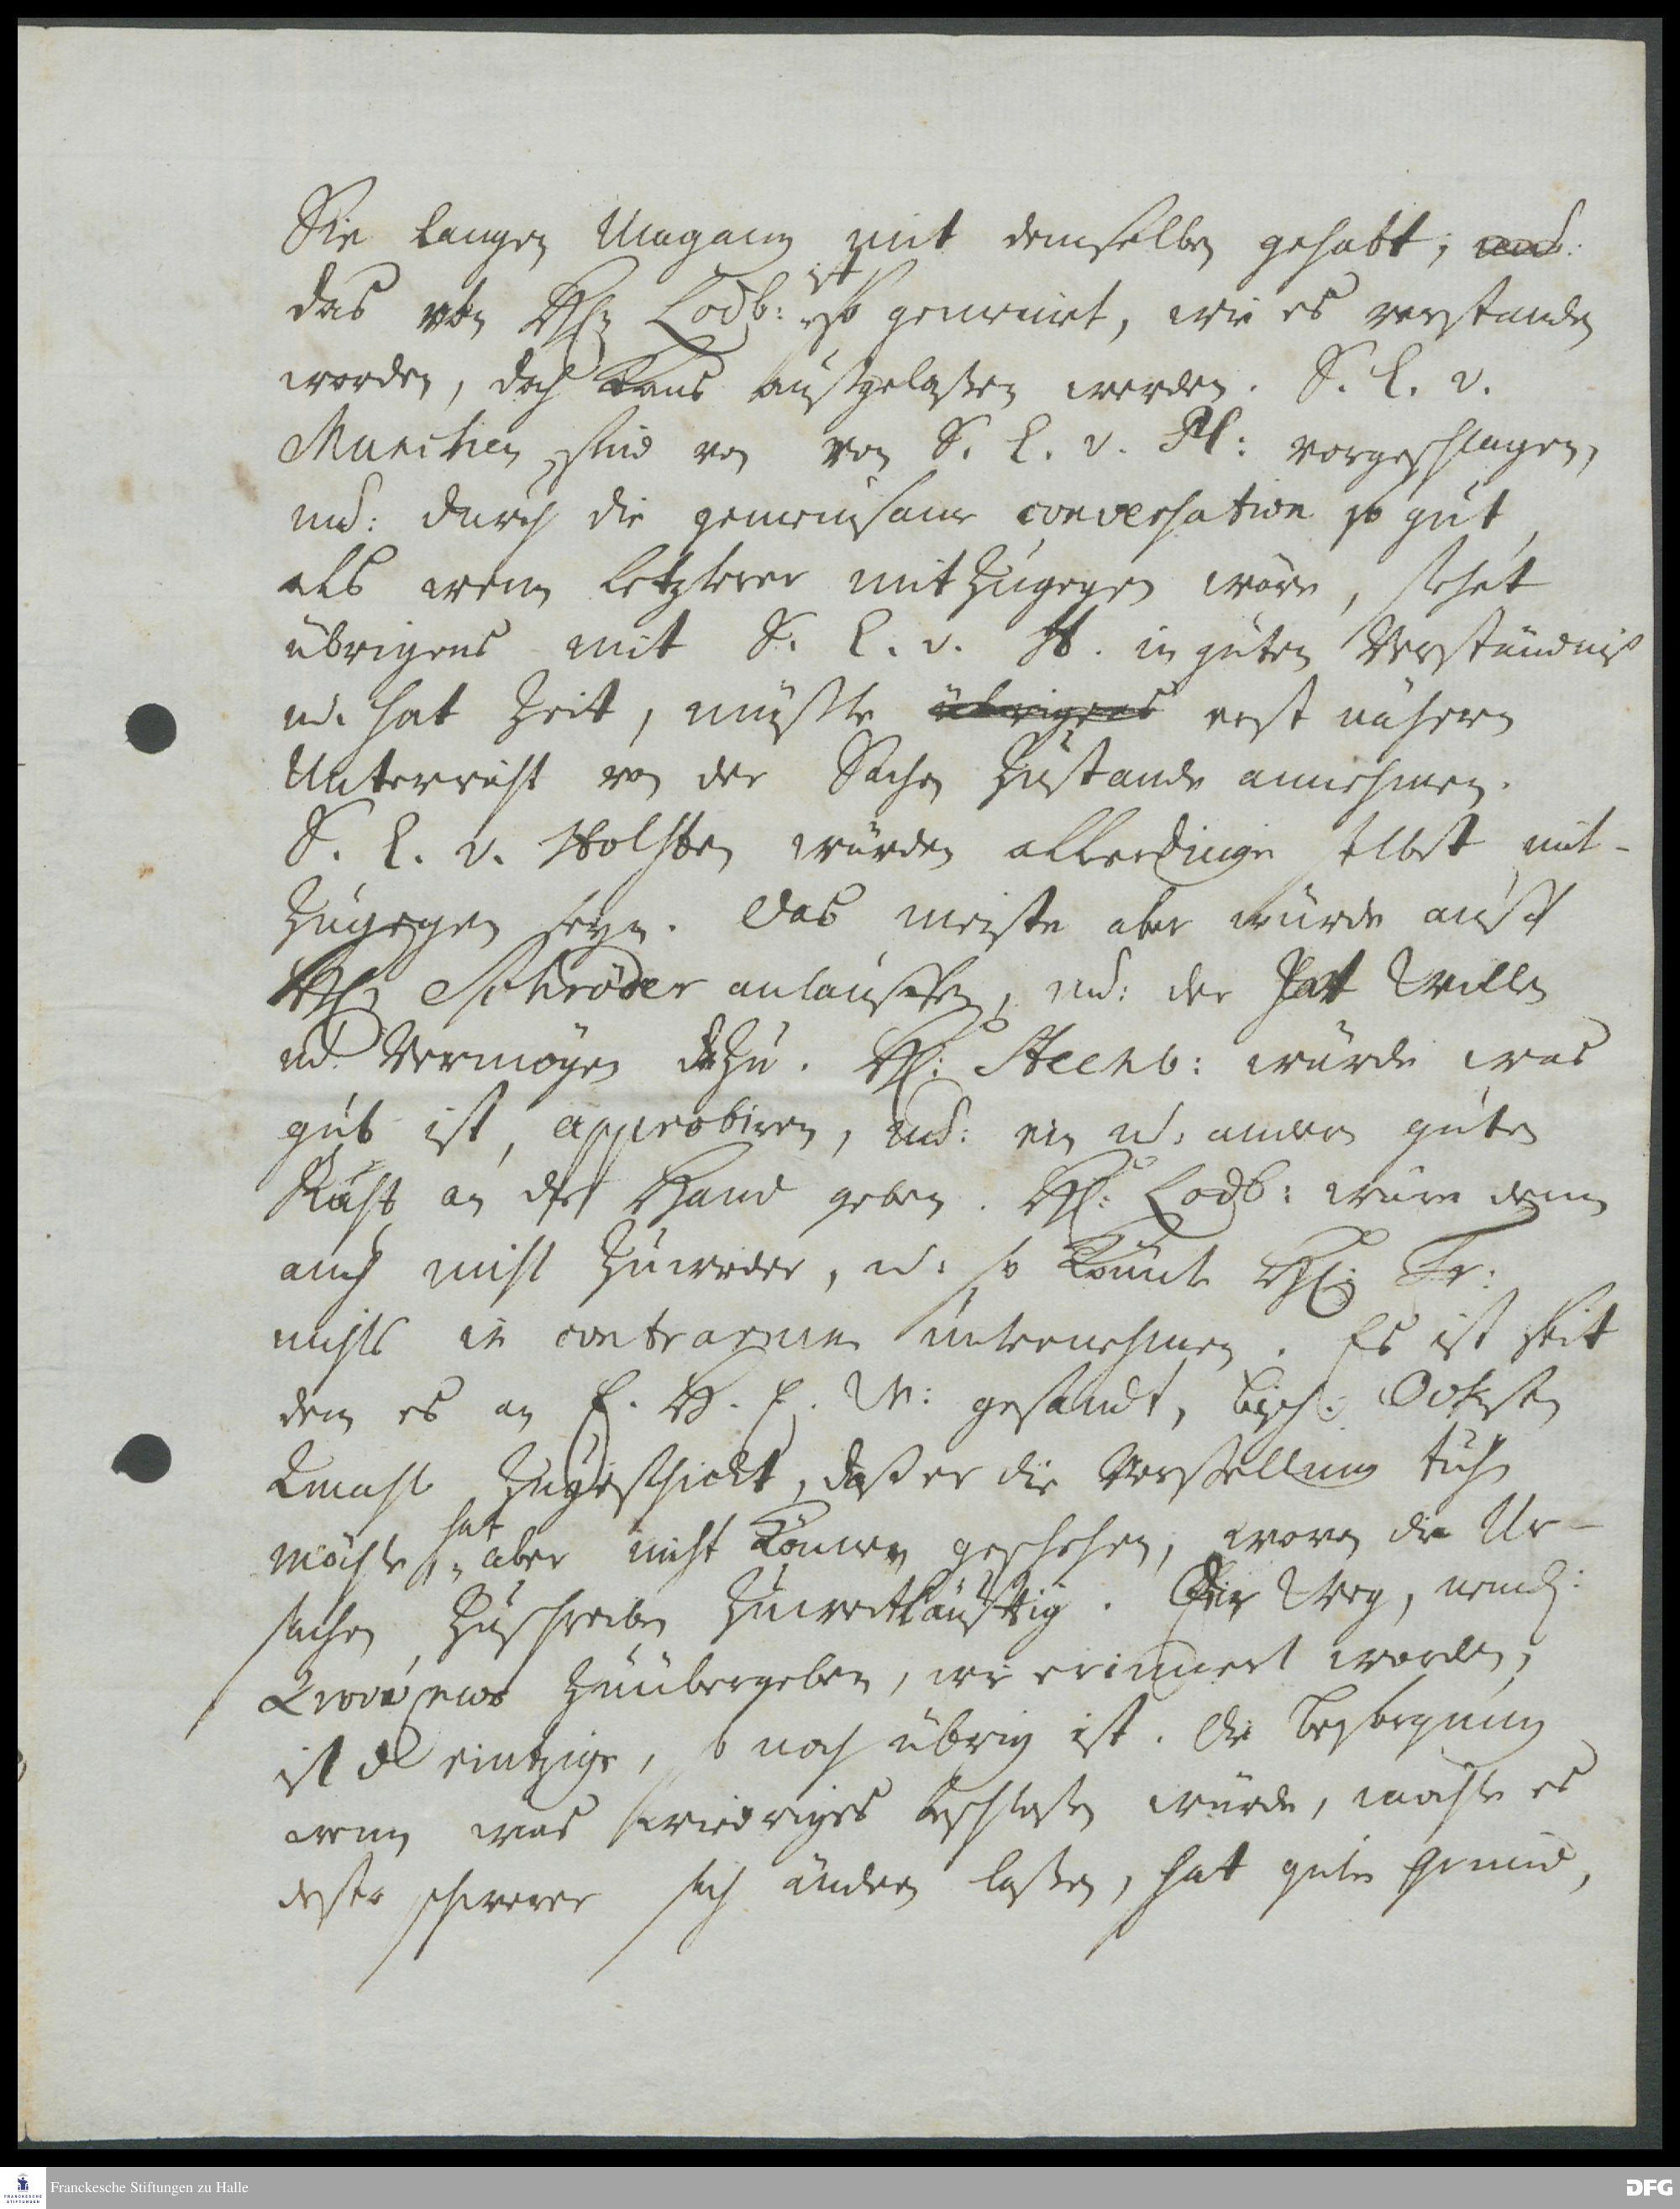 Sie langen Umgang mit demselben gehabt; und:
das von Hn Lodb: ist so gemeint, wie es verstanden
worden, doch kans außgelaßen werden. S. E. v.
Munichen sind von S. E. v. Pl: vorgeschlagen,
und: durch die gemeinsame conversation so gut,
als wenn letzterer mit zugegen wäre, stehet
übrigens mit S. E. v. H. in guten Verständniß
u. hat Zeit, müßte übrigens erst nähern
Unterricht von der Sachen Zustande annehmen.
S. E. v. Holsten würden allerdings selbst mit-
zugegen seyn. Das meiste aber würde auff
Hn Schröder anlauffen, und: der hat Willen
und Vermögen dazu. H: Steenb: würde was
gut ist, approbiren, und: ein u. andern guten
Raht an der Hand geben. H: Lodb: wäre denn
auch nicht zuwieder, u. so könte H: Fr:
nichts in contrarium unternehmen. Es ist seit
dem es an E. H. E. W: gesandt, Bisch:
zugeschickt, daß er die Vorstellung tuhn
möchte, hat aber nicht können geschehen, wovon die Ur-
sachen zuschreiben zuweitläufftig. Der Weg, neml:
zuübergeben, wie erinnert worden,
ist der eintzige, so noch übrig ist. Die Besorgung
wenn was wiedriges beschloßen würde, möchte es
desto schwerer sich ändern laßen, hat guten Grund,
Franckesche Stiftungen zu Halle
DFG